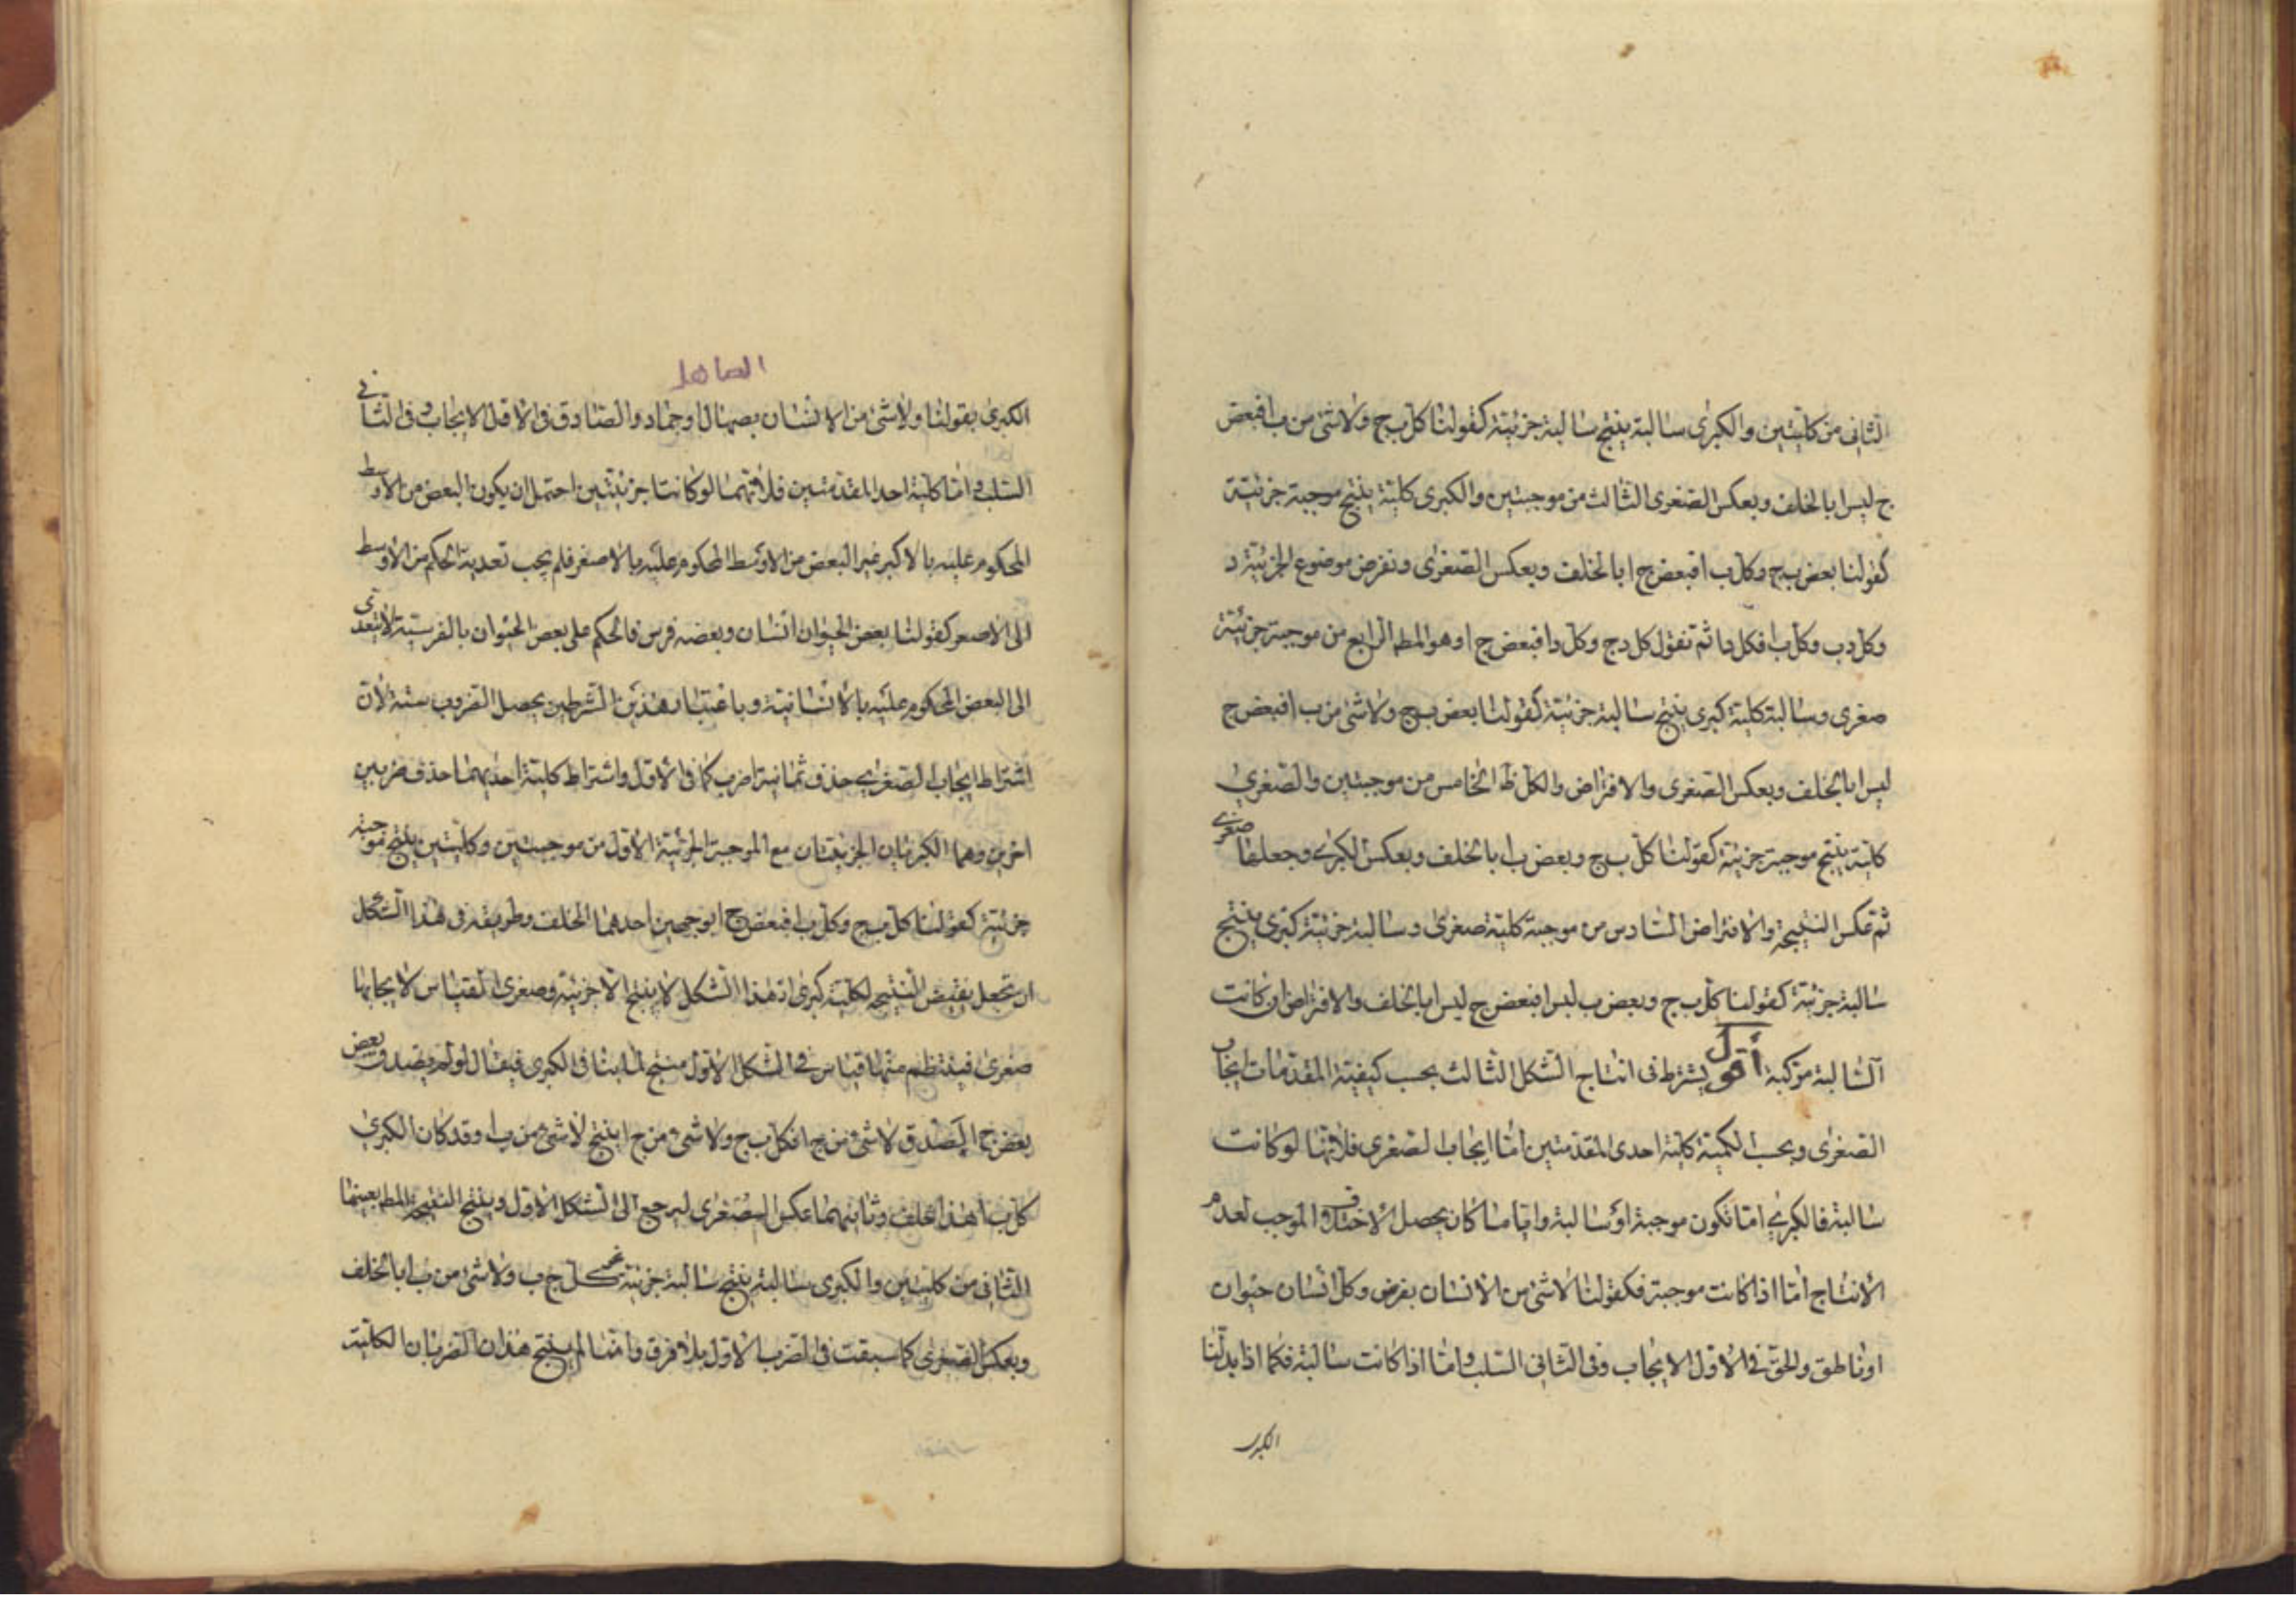 الثانى من كليتين والكبرى سالبة ينتج سالبة جزئية كقولنا كل ب ج ولا شئ من ب ا فبعض
ج ليس ا بالخلف وبعكس الصغرى الثالث من موجبتين والكبرى كلية ينتج موجبة جزئية
كقولنا بعض ب ج وكل ب ا فبعض ج ا بالخلف وبعكس الصغرى ونفرض موضوع الجزئية د
وكل د ب وكل ب ا فكل د ا ثم نقول كل د ج وكل د ا فبعض ج ا وهو المط الرابع من موجبة جزئية
صغرى وسالبة كلية كبرى ينتج سالبة جزئية كقولنا بعض ب ج ولا شئ من ب ا فبعض ج
ليس ا بالخلف وبعكس الصغرى والافتراض والكل ظ الخامس من موجبتين والصغرى
كلية ينتج موجبة جزئية كقولنا كل ب ج وبعض ب ا بالخلف وبعكس الكبرى وجعلها صغرى
ثم عكس النتيجة والافتراض السادس من موجبة كلية صغرى وسالبة جزئية كبرى ينتج
سالبة جزئية كقولنا كل ب ج وبعض ب ليس ا فبعض ج ليس ا بالخلف والافتراض ان كانت
السالبة مركبة أقول يشترط فى انتاج الشكل الثالث بحسب كيفية المقدمات ايجاب
الصغرى وبحسب الكمية كلية احدى المقدمتين اما ايجاب الصغرى فلانها لو كانت
سالبة فالكبرى اما تكون موجبة او سالبة واياما كان يحصل الاختلاف الموجب لعدم
الانتاج اما اذا كانت موجبة فكقولنا لا شئ من الانسان بفرض وكل انسان حيوان
او ناطق والحق فى الاول الايجاب وفى الثانى السلب واما اذا كانت سالبة فكما اذا بدلنا
الكبرى
الصاهل
الكبرى بقولنا ولا شئ من الانسان بصهال او جماد والصادق فى الاول الايجاب وفى الثانى
السلب واما كلية احدا المقدمتين فلانهما لو كانتا جزئيتين احتمل ان يكون البعض من الاوسط
المحكوم عليه بالاكبر غير البعض من الاوسط المحكوم عليه بالاصغر فلم يجب تعدية الحكم من الاوسط
الى الاصغر كقولنا بعض الحيوان انسان وبعضه فرس فالحكم على بعض الحيوان بالفرسية لا يتعدى
الى البعض المحكوم عليه بالانسانية وباعتبار هذين الشرطين يحصل الضروب ستة لان
اشتراط ايجاب الصغرى حذف ثمانية اضرب كما فى الاول واشتراط كلية احديهما حذف ضربين
اخرين وهما الكبريان الجزيئتان مع الموجبة الجزئية الاول من موجبتين وكليتين ينتج موجبة
جزئية كقولنا كل ب ج وكل ب ا فبعض ج ا بوجهين احدهما الخلف وطريقه فى هذا الشكل
ان تجعل نقيض النتيجه لكليته كبرى اذ هذا الشكل لا ينتج الا جزئية وصغرى القياس لايجابها
صغرى فينتظم منهما قياس فى الشكل الاول منتج لما ينافى الكبرى فيقال لو لم يصدق بعض
بعض ج ا ليصدق لا شئ من ج ا فكل ب ج ولا شئ من ج ا ينتج لا شئ من ب ا وقد كان الكبرى
كل ب ا هذا خلف وثانيهما عكس الصغرى ليرجع الى الشكل الاول وينتج النتيجة المط بعينها
الثانى من كليتين والكبرى سالبة ينتج سالبة جزئية كل ج ب ولا شئ من ب ا بالخلف
وبعكس الصغرى كما سبقت فى الضرب الاول بلا فرق وانما لم ينتج هذان الضربان الكلية